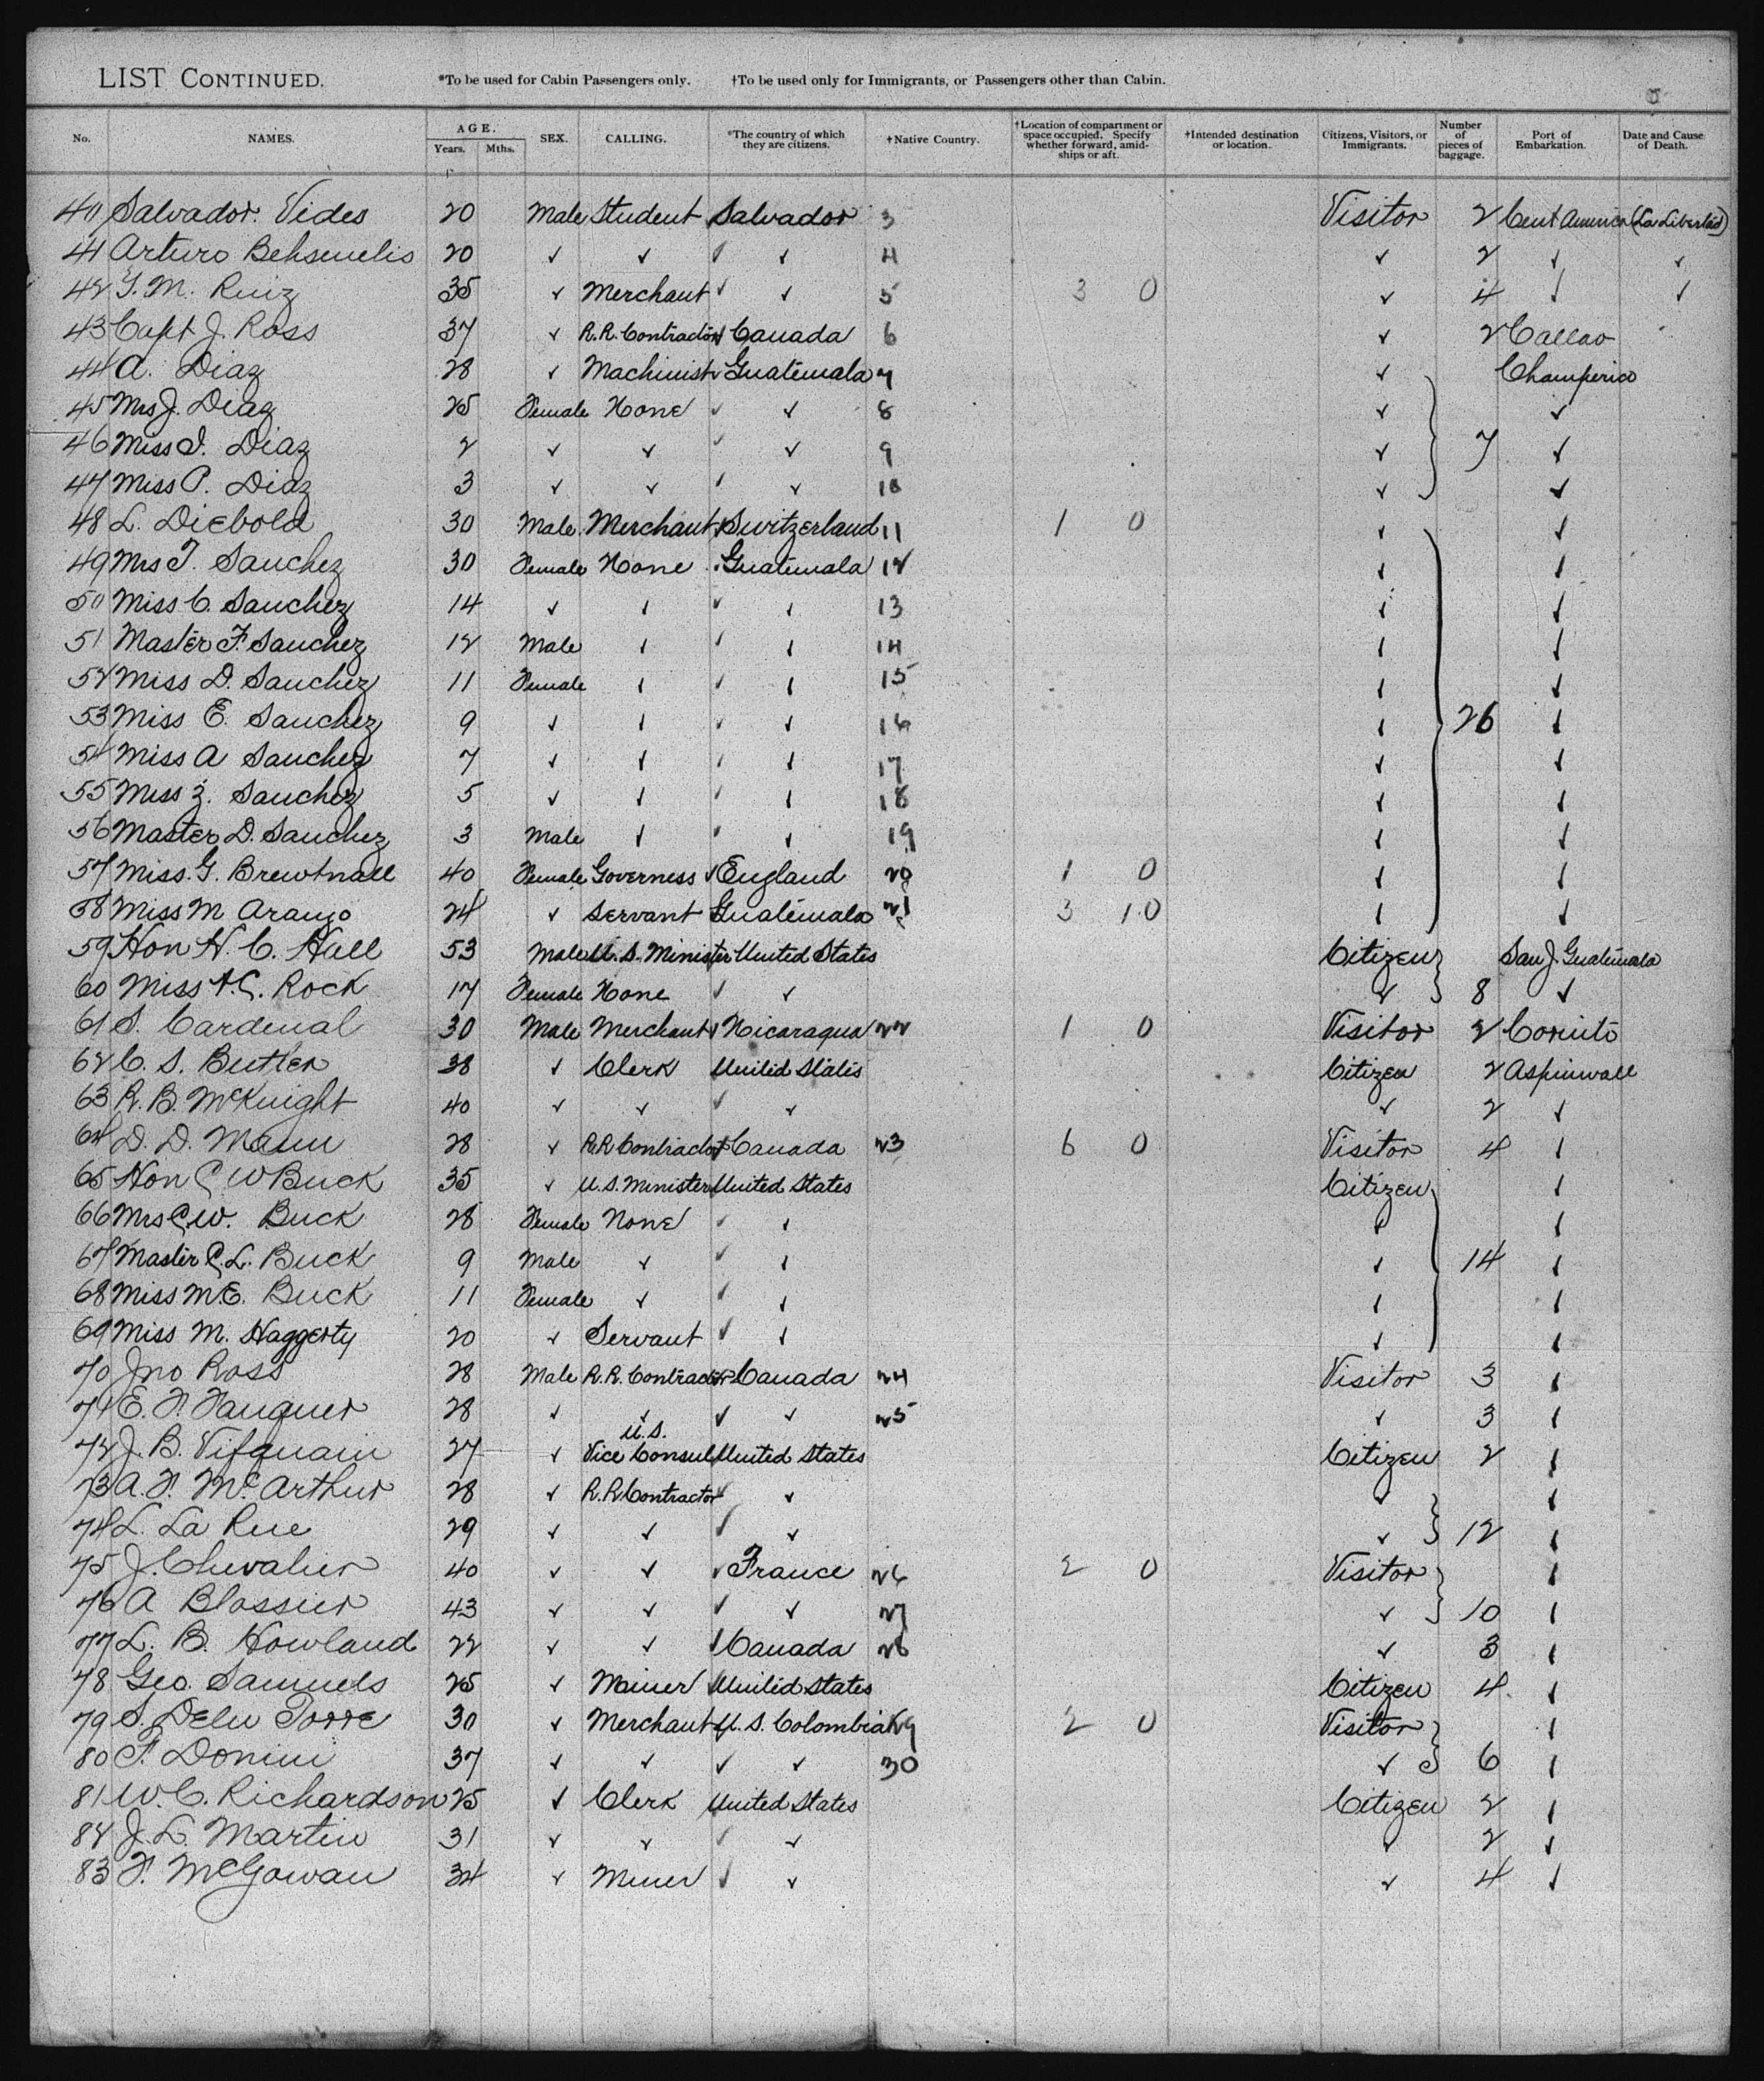 LIST CONTINUED. *To be used for Cabin Passengers only. †To be used only for Immigrants, or Passengers other than Cabin.
No. NAMES. AGE. Years. Mths. SEX. CALLING. *The country of which they are citizens. †Native Country. †Location of compartment or space occupied. Specify whether forward, amidships or aft. †Intended destination or location. Citizens, Visitors, or Immigrants. Number of pieces of baggage. Port of Embarkation. Date and Cause of Death.
40 Salvador Vides 20 Male Student Salvador 3 Visitor 2 Cent America (La Libertad)
41 Arturo 20 ✓ ✓ ✓ ✓ 4 ✓ 2 ✓ ✓
42 G. M. Ruiz 35 ✓ Merchant ✓ ✓ 5 3 0 ✓ 4 ✓ ✓
43 Capt J. Ross 37 ✓ R.R. Contractor ✓ Canada 6 ✓ 2 Callao
44 A. Diaz 28 ✓ Machinist ✓ Guatemala 7 ✓ Champerico
45 Mrs J. Diaz 25 Female None ✓ ✓ 8 ✓ ✓
46 Miss I. Diaz 2 ✓ ✓ ✓ ✓ 9 ✓ 7 ✓
47 Miss P. Diaz 3 ✓ ✓ ✓ ✓ 10 ✓ ✓
48 L. Diebold 30 Male Merchant ✓ Switzerland 11 1 0 ✓ ✓
49 Mrs T. Sanchez 30 Female None Guatemala 12 ✓ ✓
50 Miss C. Sanchez 14 ✓ ✓ ✓ ✓ 13 ✓ ✓
51 Master F. Sanchez 12 Male ✓ ✓ ✓ 14 ✓ ✓
52 Miss D. Sanchez 11 Female ✓ ✓ ✓ 15 ✓ ✓
53 Miss E. Sanchez 9 ✓ ✓ ✓ ✓ 16 ✓ 26 ✓
54 Miss A Sanchez 7 ✓ ✓ ✓ ✓ 17 ✓ ✓
55 Miss Z. Sanchez 5 ✓ ✓ ✓ ✓ 18 ✓ ✓
56 Master D. Sanchez 3 Male ✓ ✓ ✓ 19 ✓ ✓
57 Miss. G. Brewtnall 40 Female Governess ✓ England 20 1 0 ✓ ✓
58 Miss M Araujo 24 ✓ Servant Guatemala 21 3 10 ✓ ✓
59 Hon H. C. Hall 53 Male U.S. Minister United States Citizen San J. Guatemala
60 Miss A. C. Rock 17 Female None ✓ ✓ ✓ 8 ✓
61 S. Cardenal 30 Male Merchant ✓ Nicaragua 22 1 0 Visitor 2 Corinto
62 C. S. Butler 38 ✓ Clerk United States Citizen 2 Aspinwall
63 R. B. McKnight 40 ✓ ✓ ✓ ✓ ✓ 2 ✓
64 D. D. Mann 28 ✓ R.R. Contractor ✓ Canada 23 6 0 Visitor 4 ✓
65 Hon C W Buck 35 ✓ U.S. Minister United States Citizen ✓
66 Mrs C. W. Buck 28 Female None ✓ ✓ ✓ ✓
67 Master C. L. Buck 9 Male ✓ ✓ ✓ ✓ 14 ✓
68 Miss M. E. Buck 11 Female ✓ ✓ ✓ ✓ ✓
69 Miss M. Haggerty 20 ✓ Servant ✓ ✓ ✓ ✓
70 Jno Ross 28 Male R.R. Contractor ✓ Canada 24 Visitor 3 ✓
71 E. F. Fauquier 28 ✓ ✓ ✓ ✓ 25 ✓ 3 ✓
72 J. B. Vifquain 27 ✓ U.S. Vice Consul United States Citizen 2 ✓
73 A. F. McArthur 28 ✓ R.R. Contractor ✓ ✓ ✓ ✓
74 L. La Rue 29 ✓ ✓ ✓ ✓ ✓ 12 ✓
75 J. Chevalier 40 ✓ ✓ ✓ France 26 2 0 Visitor ✓
76 A Blossier 43 ✓ ✓ ✓ ✓ 27 ✓ 10 ✓
77 L. B. Howland 22 ✓ ✓ ✓ Canada 28 ✓ 3 ✓
78 Geo. Samuels 25 ✓ Miner ✓ United States Citizen 4 ✓
79 S. Torre 30 ✓ Merchant U.S. Colombia 29 2 0 Visitor ✓
80 F. Donini 37 ✓ ✓ ✓ ✓ 30 ✓ 6 ✓
81 W. C. Richardson 25 ✓ Clerk United States Citizen 2 ✓
82 J. L. Martin 31 ✓ ✓ ✓ ✓ ✓ 2 ✓
83 F. McGowan 34 ✓ Miner ✓ ✓ ✓ 4 ✓